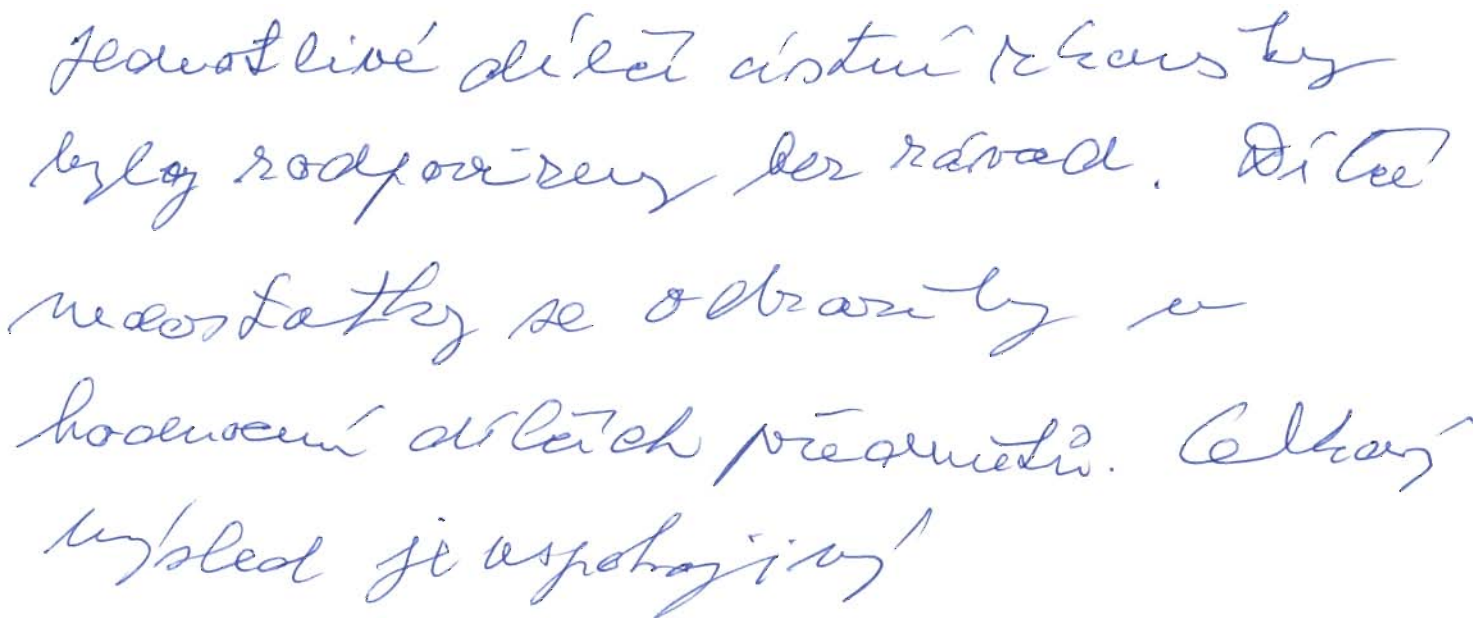 Jednotlivé dílčí ústní zkoušky
byly zodpovězeny bez závad. Dílčí
nedostatky se odrazily v
hodnocení dílčích předmětů. Celkový
výsled je uspokojivý